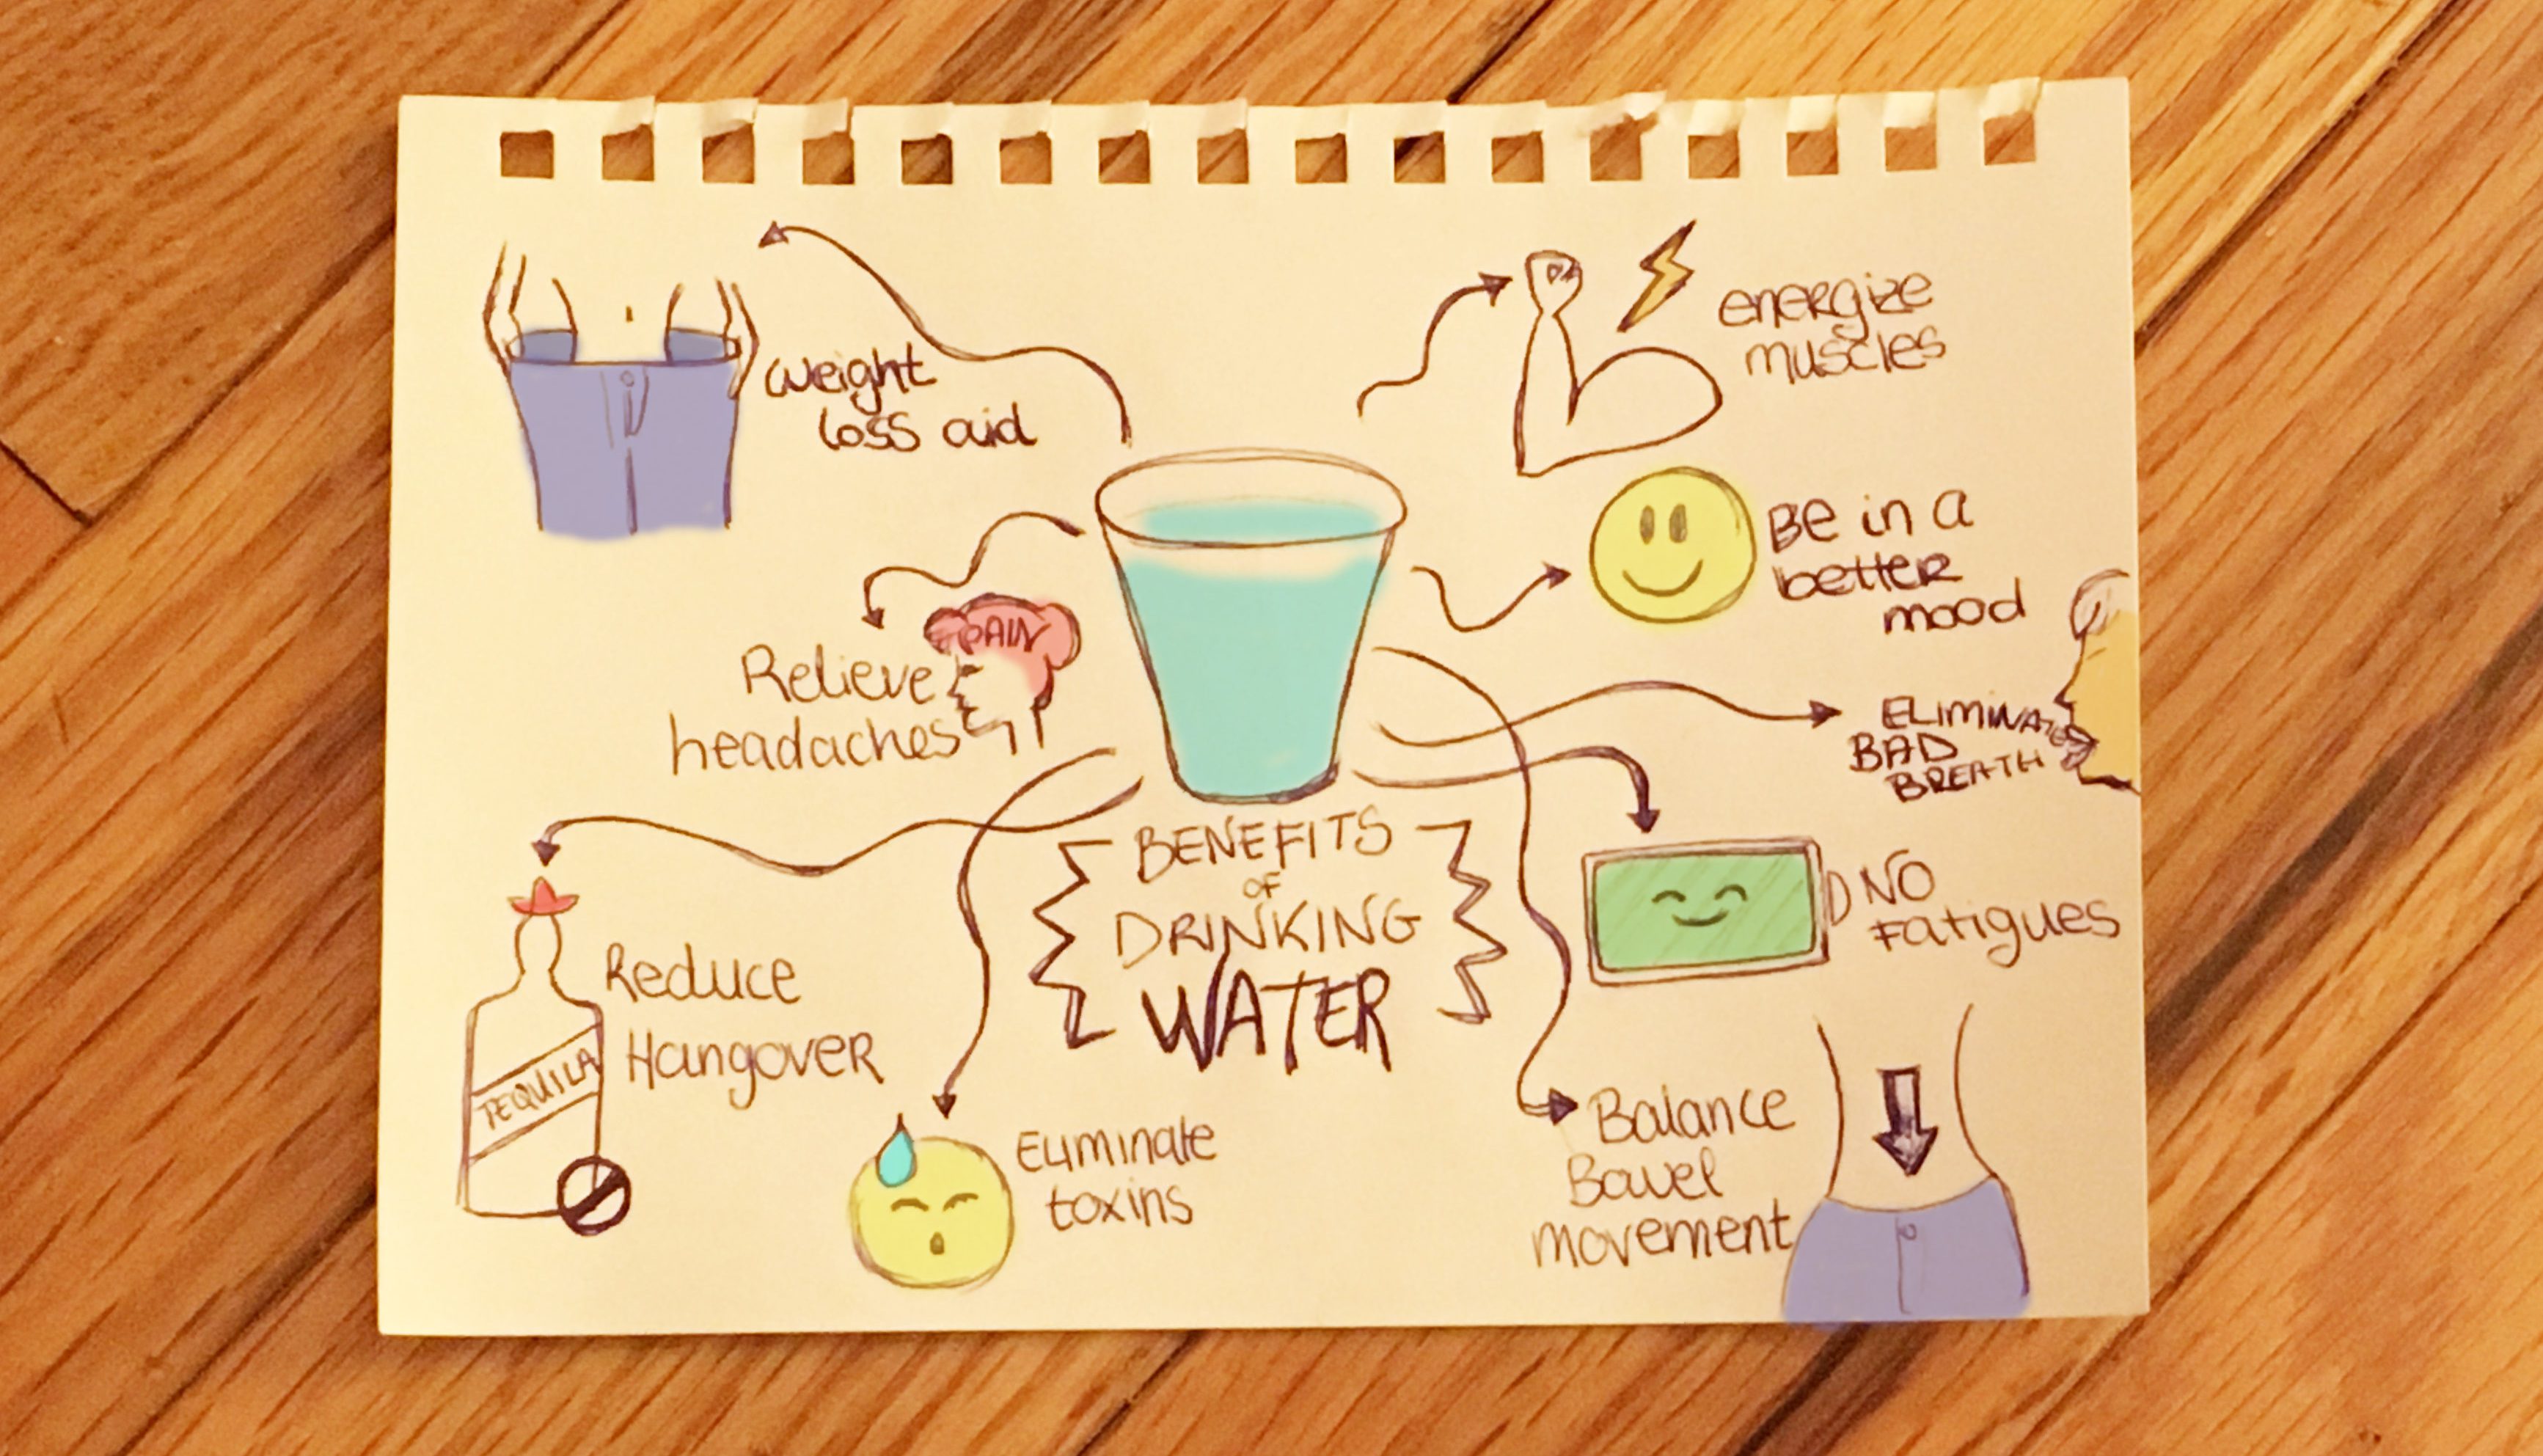 weight
loss aid
energize
muscles
Be in a
better
mood
PAIN
Relieve
headaches
ELIMINATE
BAD
BREATH
BENEFITS
OF
DRINKING
WATER
NO
Fatigues
Reduce
Hangover
TEQUILA
Eliminate
toxins
Balance
Bowel
movement